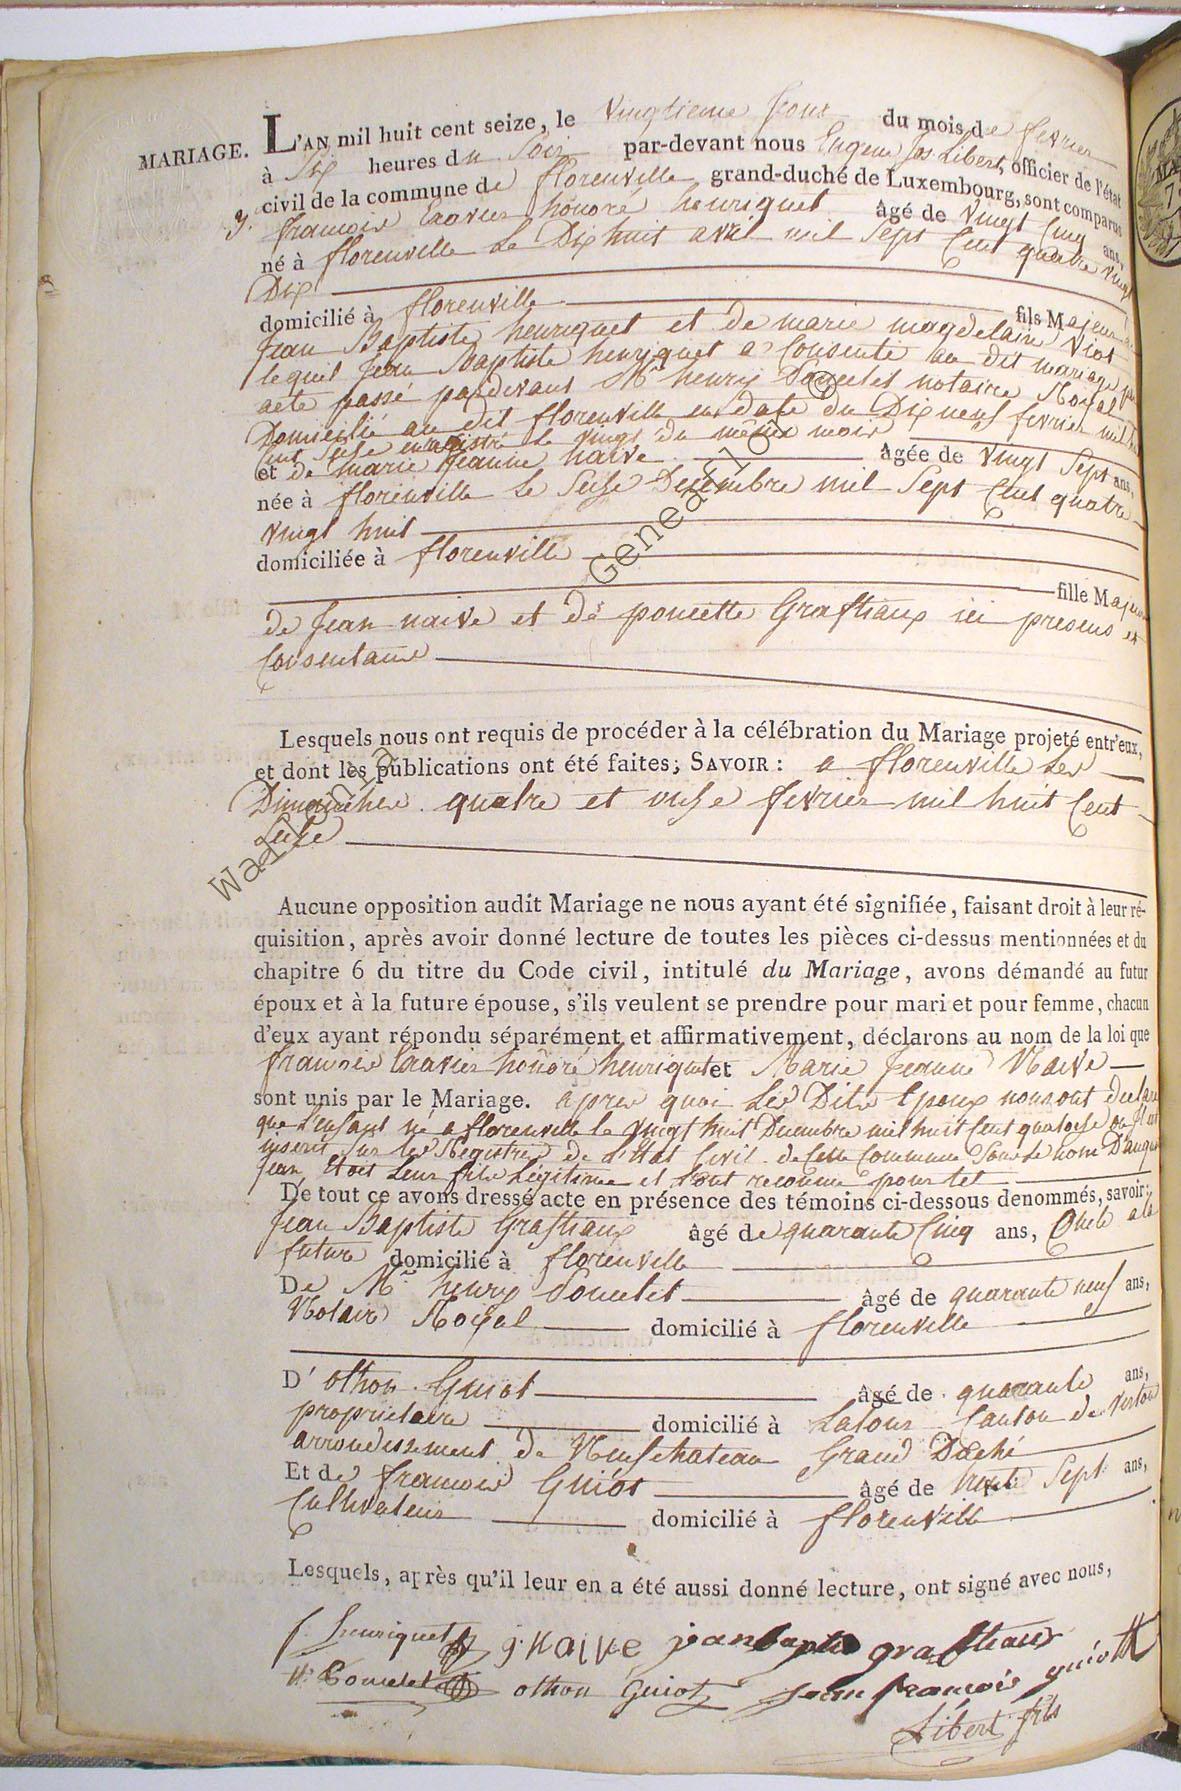 MARIAGE.
L'AN mil huit cent seize, le vingtieme Jour du mois de fevrier
à Six heures du Soir par-devant nous Eugene Jos Libert, officier de l'état
civil de la commune de florenville grand-duché de Luxembourg, sont comparus
3. francois Exavier honoré henriquet âgé de vingt Cinq ans,
né à florenville le Dix huit avril mil Sept Cent quatre vingt
Dix
domicilié à florenville fils Majeur de
Jean Baptiste henriquet et de marie magdelaine Viot
lequel Jean Baptiste henriquet a Consenti au dit mariage par
acte passé pardevant Me henry Poncelet notaire Royal
Domicilié au dit florenville en date du Dix neuf fevrier mil huit
Cent Seise enregistré le vingt du même mois
et de marie Jeanne naive âgée de vingt Sept ans,
née à florenville le Seise Decembre mil Sept Cent quatre
vingt huit
domiciliée à florenville
fille Majeure
de Jean naive et de poncette Graftiaux ici presens et
Consentants
Lesquels nous ont requis de procéder à la célébration du Mariage projeté entr'eux,
et dont les publications ont été faites; SAVOIR : a florenville les
Dimanches quatre et onse fevrier mil huit Cent
Seise
Aucune opposition audit Mariage ne nous ayant été signifiée, faisant droit à leur ré-
quisition, après avoir donné lecture de toutes les pièces ci-dessus mentionnées et du
chapitre 6 du titre du Code civil, intitulé du Mariage, avons démandé au futur
époux et à la future épouse, s'ils veulent se prendre pour mari et pour femme, chacun
d'eux ayant répondu séparément et affirmativement, déclarons au nom de la loi que
francois Exavier honoré henriquet et Marie Jeanne Naive
sont unis par le Mariage. apres quoi Les Dits Epoux nous ont declaré
que L'enfant né a florenville le vingt huit Decembre mil huit Cent quatorse
inscrit Sur les Registres de L'Etat Civil de Cette Commune Sous le nom
Jean, Etoit Leur fils Légitime et L'ont reconnu pour tel
De tout ce avons dressé acte en présence des témoins ci-dessous denommés, savoir:
Jean Baptiste Graftiaux âgé de quarante Cinq ans, Oncle a la
future domicilié à florenville
De Me henry Poncelet âgé de quarante neuf ans,
Notaire Royal domicilié à florenville
D'othon Guiot âgé de quarante ans,
proprietaire domicilié à Latour Canton de Virton
arrondissement de Neufchateau Grand Duché
Et de francois Guiot âgé de trente Sept ans,
Cultivateur domicilié à florenville
Lesquels, après qu'il leur en a été aussi donné lecture, ont signé avec nous,
f. henriquet g. naive jean baptis graftiaux
H. Poncelet othon Guiot Jean francois guiott
Libert fils
Genea-flor ©